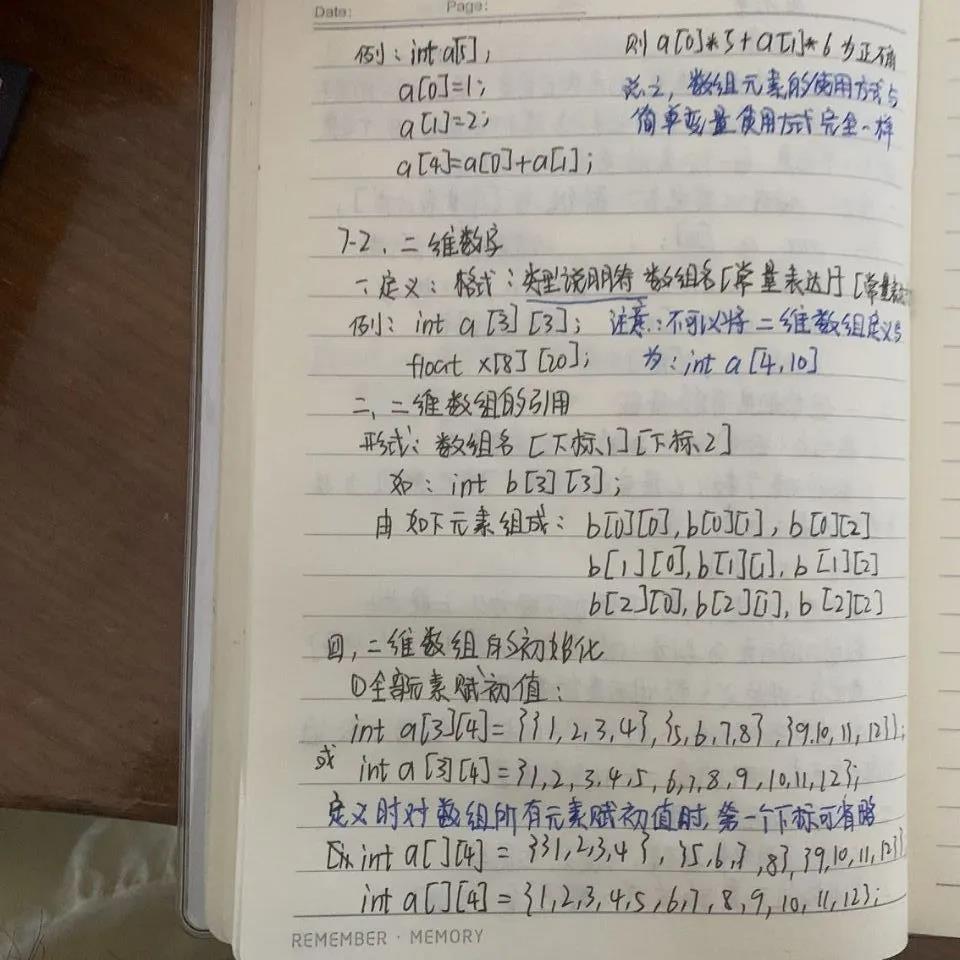 Date: Page:
例: int a[5]; 则 a[0]*5+a[1]*6 为正确
a[0]=1; 总之, 数组元素的使用方式与
a[1]=2; 简单变量使用方式完全一样
a[4]=a[0]+a[1];
7-2. 二维数字
一定义: 格式: 类型说明符 数组名[常量表达] [常量表达
例: int a[3][3]; 注意: 不可以将二维数组定义与
float x[8][20]; 为: int a[4,10]
二、二维数组的引用
形式: 数组名[下标1][下标2]
如: int b[3][3];
由如下元素组成: b[0][0], b[0][1], b[0][2]
b[1][0], b[1][1], b[1][2]
b[2][0], b[2][1], b[2][2]
四, 二维数组的初始化
①全部元素赋初值:
int a[3][4]={{1,2,3,4},{5,6,7,8},{9,10,11,12}};
或 int a[3][4]={1,2,3,4,5,6,7,8,9,10,11,12};
定义时对数组所有元素赋初值时,第一个下标可省略
int a[][4]={{1,2,3,4},{5,6,7,8},{9,10,11,12}}
int a[][4]={1,2,3,4,5,6,7,8,9,10,11,12};
REMEMBER · MEMORY